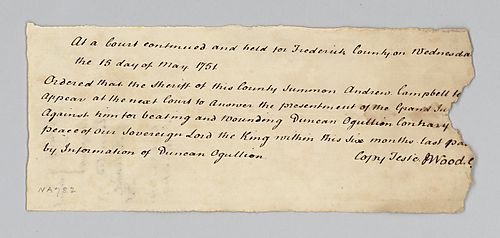 At a Court continued and held for Frederick County on Wednesda
the 15 day of May 1751
Ordered that the Sheriff of this County Summon Andrew Campbell to
Appear at the next Court to Answer the presentment of the Grand Ju
Against him for beating and wounding Duncan Ogullion Contrary
peace of our Sovereign Lord the King within this Six months last pas
by Information of Duncan Ogullion
Copy Teste JWood C
NA782